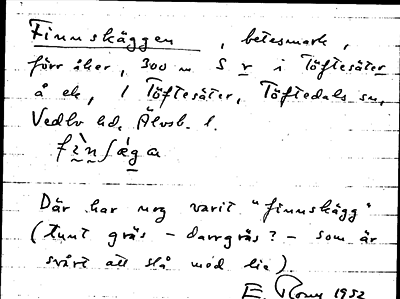 Finnskäggen, betesmark,
förr åker, 300 m S v i Töftesäter
å ek, 1 Töftesäter, Töftedals sn,
Vedbo hd, Älvsb. l.
Där har nog varit "finnskägg"
(tunt gräs - darrgräs? - som är
svårt att slå med lie).
E. 1952